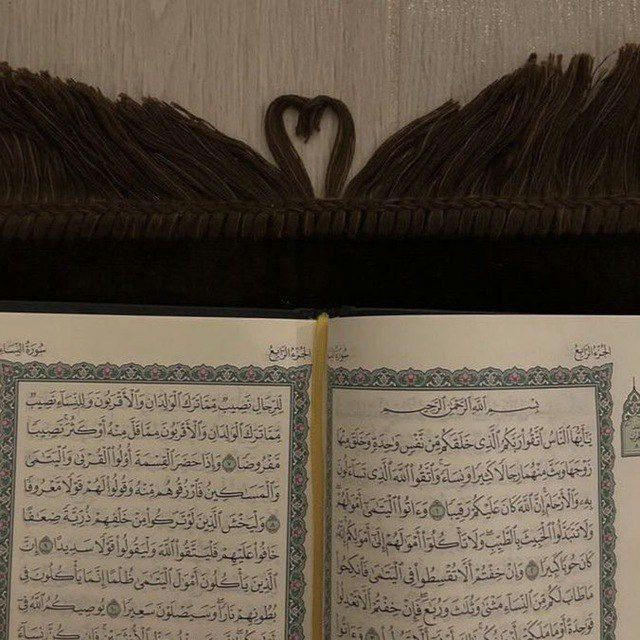 الجزء الرابع
سورة
بِسْمِ ٱللَّهِ ٱلرَّحْمَٰنِ ٱلرَّحِيمِ
يَٰٓأَيُّهَا ٱلنَّاسُ ٱتَّقُوا۟ رَبَّكُمُ ٱلَّذِى خَلَقَكُم مِّن نَّفْسٍ وَٰحِدَةٍ وَخَلَقَ مِنْهَا
زَوْجَهَا وَبَثَّ مِنْهُمَا رِجَالًا كَثِيرًا وَنِسَآءً وَٱتَّقُوا۟ ٱللَّهَ ٱلَّذِى تَسَآءَلُونَ
بِهِۦ وَٱلْأَرْحَامَ إِنَّ ٱللَّهَ كَانَ عَلَيْكُمْ رَقِيبًا ١ وَءَاتُوا۟ ٱلْيَتَٰمَىٰٓ أَمْوَٰلَهُمْ
وَلَا تَتَبَدَّلُوا۟ ٱلْخَبِيثَ بِٱلطَّيِّبِ وَلَا تَأْكُلُوٓا۟ أَمْوَٰلَهُمْ إِلَىٰٓ أَمْوَٰلِكُمْ إِنَّهُۥ
كَانَ حُوبًا كَبِيرًا ٢ وَإِنْ خِفْتُمْ أَلَّا تُقْسِطُوا۟ فِى ٱلْيَتَٰمَىٰ فَٱنكِحُوا۟
مَا طَابَ لَكُم مِّنَ ٱلنِّسَآءِ مَثْنَىٰ وَثُلَٰثَ وَرُبَٰعَ فَإِنْ خِفْتُمْ أَلَّا تَعْدِلُوا۟
فَوَٰحِدَةً أَوْ مَا مَلَكَتْ أَيْمَٰنُكُمْ ذَٰلِكَ أَدْنَىٰٓ أَلَّا تَعُولُوا۟ ٣ وَءَاتُوا۟
الجزء الرابع
سورة النساء
لِّلرِّجَالِ نَصِيبٌ مِّمَّا تَرَكَ ٱلْوَٰلِدَانِ وَٱلْأَقْرَبُونَ وَلِلنِّسَآءِ نَصِيبٌ
مِّمَّا تَرَكَ ٱلْوَٰلِدَانِ وَٱلْأَقْرَبُونَ مِمَّا قَلَّ مِنْهُ أَوْ كَثُرَ نَصِيبًا
مَّفْرُوضًا ٧ وَإِذَا حَضَرَ ٱلْقِسْمَةَ أُو۟لُوا۟ ٱلْقُرْبَىٰ وَٱلْيَتَٰمَىٰ
وَٱلْمَسَٰكِينُ فَٱرْزُقُوهُم مِّنْهُ وَقُولُوا۟ لَهُمْ قَوْلًا مَّعْرُوفًا
٨ وَلْيَخْشَ ٱلَّذِينَ لَوْ تَرَكُوا۟ مِنْ خَلْفِهِمْ ذُرِّيَّةً ضِعَٰفًا
خَافُوا۟ عَلَيْهِمْ فَلْيَتَّقُوا۟ ٱللَّهَ وَلْيَقُولُوا۟ قَوْلًا سَدِيدًا ٩ إِنَّ
ٱلَّذِينَ يَأْكُلُونَ أَمْوَٰلَ ٱلْيَتَٰمَىٰ ظُلْمًا إِنَّمَا يَأْكُلُونَ فِى
بُطُونِهِمْ نَارًا وَسَيَصْلَوْنَ سَعِيرًا ١٠ يُوصِيكُمُ ٱللَّهُ فِىٓ